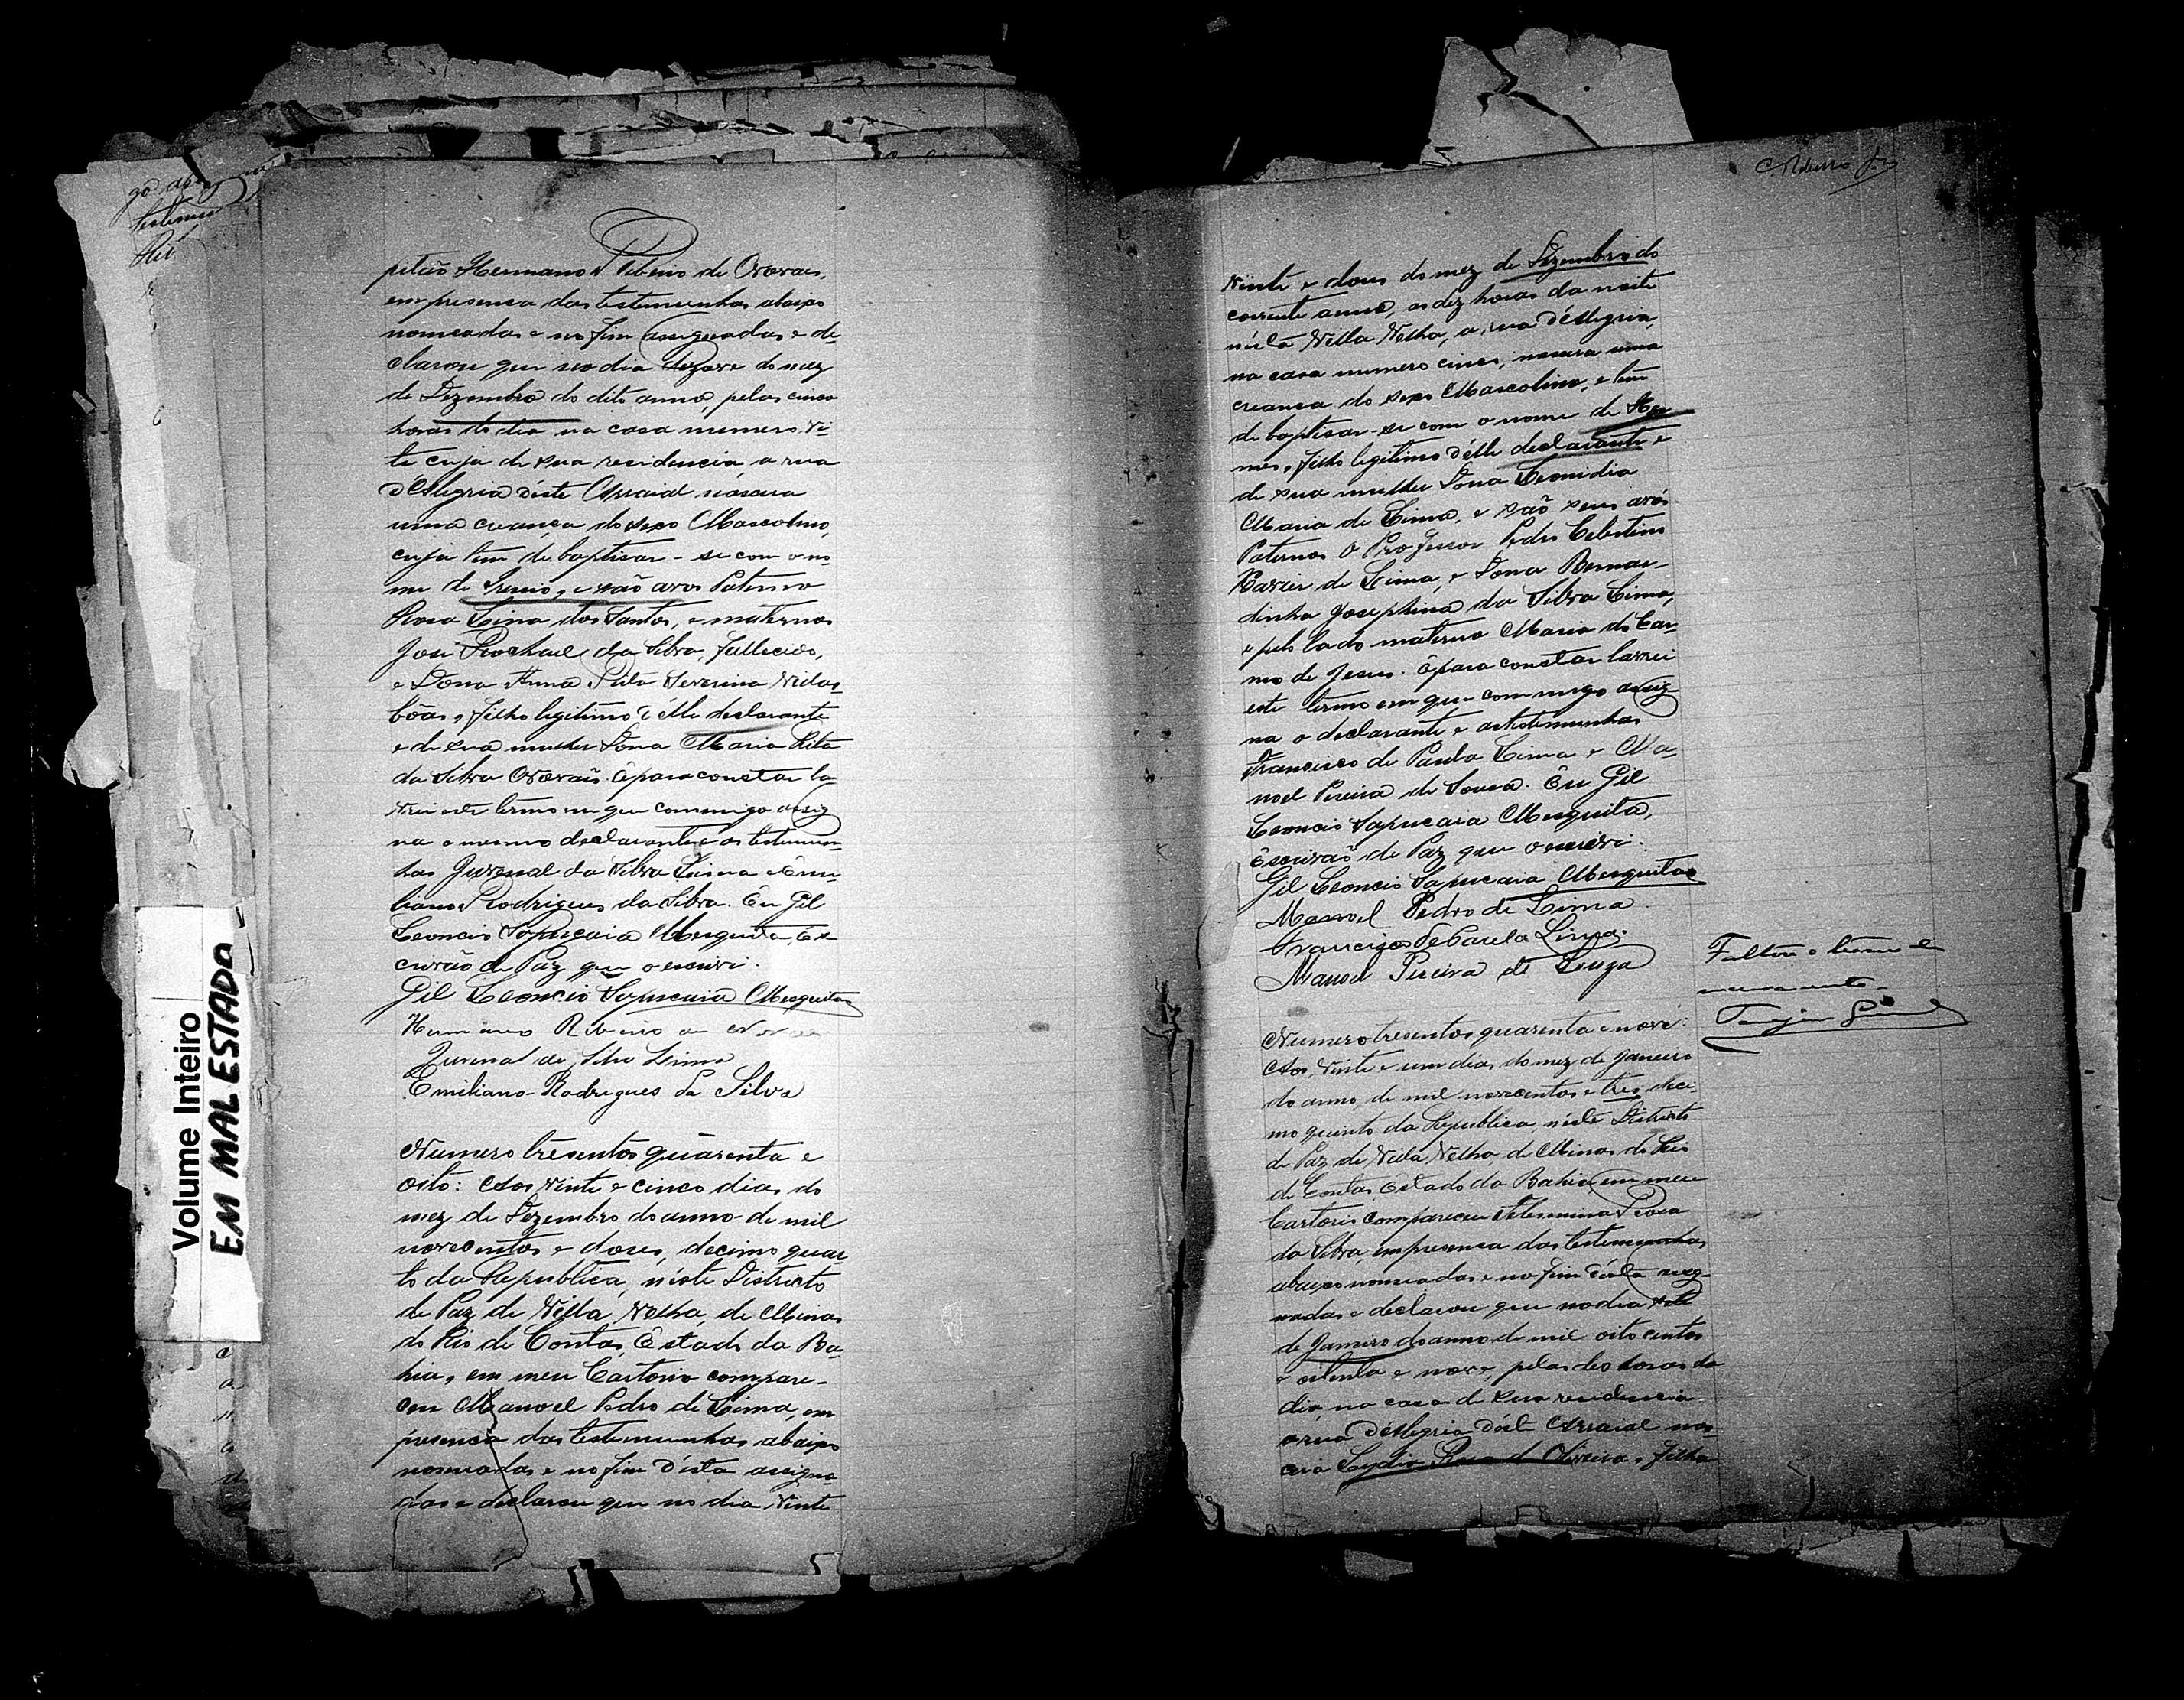 Volume Inteiro
EM MAL ESTADO
pitão Hermano Ribeiro de Novaes,
em presença das testemunhas abaixo
nomeadas e no fim assignadas e de-
clarou que no dia do mez
de Dezembro do dito anno, pelas cinco
horas do dia na casa numero
te cuja de sua residencia a rua
d'Alegria d'éste Arraial náscera
uma creança do sexo Mascolino,
cuja tem de baptisar-se com o no-
me de e são avos Paterno
Rosa Lina dos Santos, e maternos
José Rachael da Silva, fallecido,
e Dona Anna Rita Severina Villas-
bôas, filho legitimo d'elle declarante
e de sua mulher Dona Maria Rita
da Silva Novaes. E para constar la-
vrei este termo em que commigo assig-
na o mesmo declarante e as testemun-
has Juvenal da Silva Lima e Emi-
liano Rodrigues da Silva. Eu Gil
Leoncio Sapucaia Mesquita, Es-
crivão de Paz que o escrivi.
Gil Leoncio Sapucaia Mesquita
Hermano Ribeiro de Novaes
Juvenal da Silva Lima
Emiliano Rodrigues da Silva
Numero tresentos quarenta e
oito: Aos vinte e cinco dias do
mez de Dezembro do anno de mil
novecentos e dous, decimo quar-
to da Republica, néste Districto
de Paz de Villa Velha, de Minas
do Rio de Contas, Estado da Ba-
hia, em meu Cartorio compare-
ceu Manoel Pedro de Lima, em
presença das testemunhas abaixo
nomeadas e no fim d'ésta assigna-
das e declarou que no dia vinte
Vinte e dous do mez de Dezembro do
corrente anno, as dez horas da noite
nésta Villa Velha, a rua d'Alegria,
na casa numero cinco, nascera uma
creança do sexo Mascolino, e tem
de baptisar-se com o nome de Her-
mes, filho legitimo d'elle declarante e
de sua mulher Dona Leonidia
Maria de Lima, e são seus avós
Paternos o Professor Pedro Celestino
Xavier de Lima, e Dona Bernar-
dinha Josephina da Silva Lima,
e pelo lado materno Maria do Car-
mo de Jesus. E para constar lavrei
este termo em que commigo assig-
na o declarante e as testemunhas
Francisco de Paula Lima e Ma-
noel Pereira de Sousa. Eu Gil
Leoncio Sapucaia Mesquita,
Escrivão de Paz que o escrivi.
Gil Leoncio Sapucaia Mesquita
Manoel Pedro de Lima.
Francisco de Paula Lima.
Manoel Pereira de Souza
Numero tresentos quarenta e nove:
Aos vinte e um dias do mez de Janeiro
do anno de mil novecentos e tres, deci-
mo quinto da Republica, néste Districto
de Paz de Villa Velha, de Minas do Rio
de Contas, Estado da Bahia em meu
Cartorio compareceu Rosa
da Silva, em presença das testemunhas
abaixo nomeadas e no fim d'ésta assig-
nadas e declarou que no dia sete
de Janeiro do anno de mil oito centos
e oitenta e nove, pelas horas do
dia, na casa de sua residencia
a rua d'Alegria d'éste Arraial nas-
cera Lydia Rosa de Oliveira, filha
Faltou o termo de